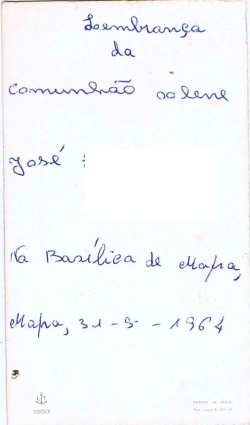 Lembrança
da
Comunhão solene
José
Na Basílica de Mafra,
Mafra, 31-5-1964